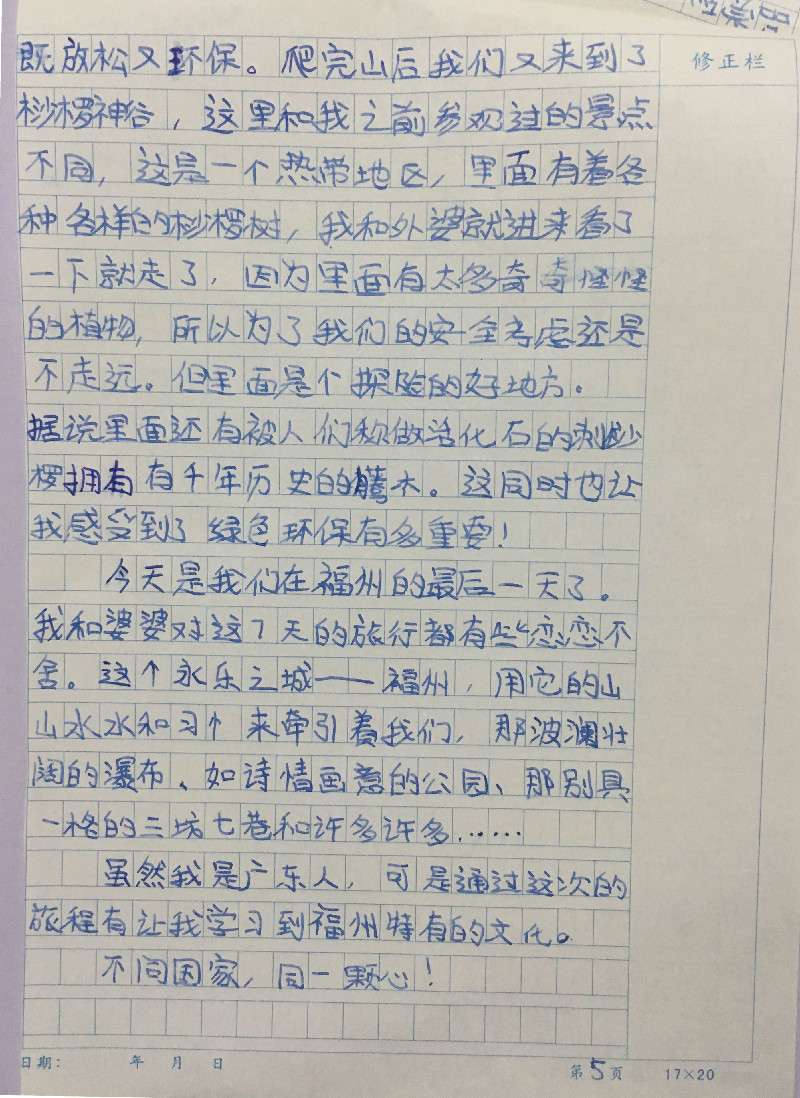 既放松又环保。爬完山后我们又来到了
修正栏
桫椤神谷，这里和我之前参观过的景点
不同，这是一个热带地区，里面有着各
种各样的桫椤树，我和外婆就进来看了
一下就走了，因为里面有太多奇奇怪怪
的植物，所以为了我们的安全考虑还是
不走远。但里面是个探险的好地方。
据说里面还有被人们称做活化石的刺桫
椤拥有有千年历史的腾木。这同时也让
我感受到了绿色环保有多重要！
今天是我们在福州的最后一天了。
我和婆婆对这7天的旅行都有些恋恋不
舍。这个永乐之城——福州，用它的山
山水水和习个来牵引着我们，那波澜壮
阔的瀑布、如诗情画意的公园、那别具
一格的三坊七巷和许多许多……
虽然我是广东人，可是通过这次的
旅程有让我学习到福州特有的文化。
不同国家，同一颗心！
日期： 年 月 日
第5页 17×20